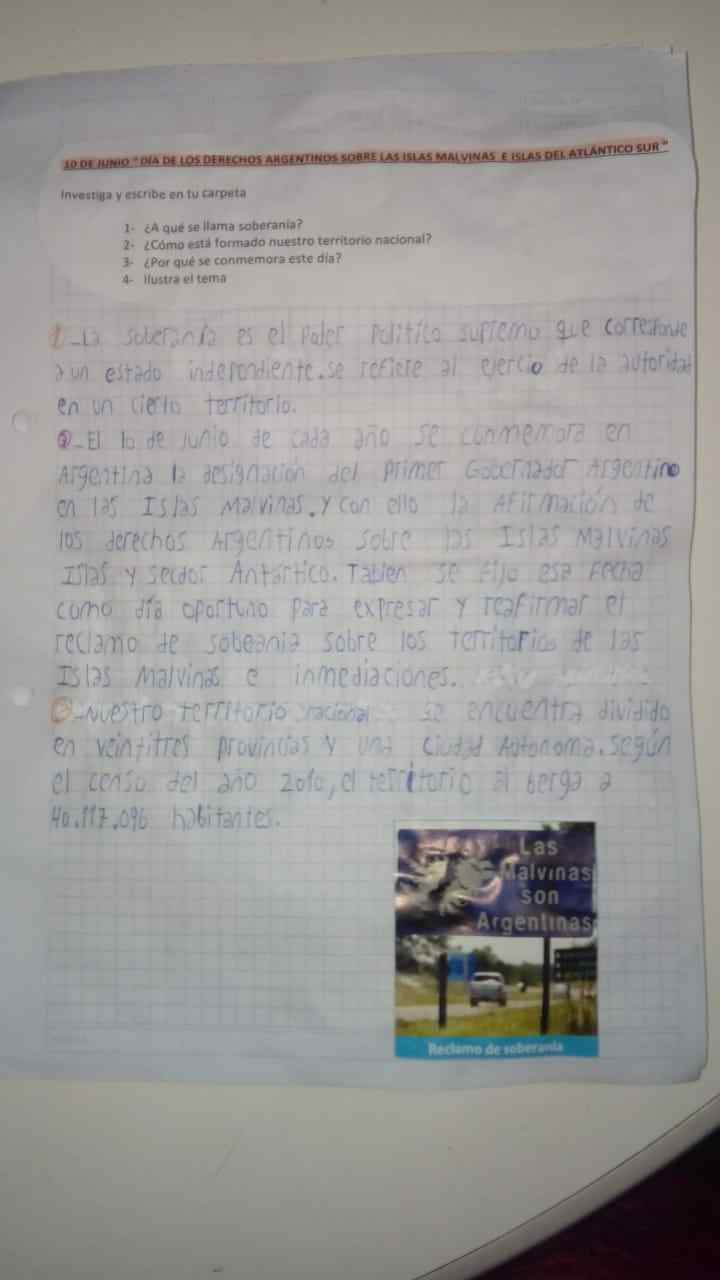 10 DE JUNIO " DÍA DE LOS DERECHOS ARGENTINOS SOBRE LAS ISLAS MALVINAS E ISLAS DEL ATLÁNTICO SUR "
Investiga y escribe en tu carpeta
1- ¿A qué se llama soberanía?
2- ¿Cómo está formado nuestro territorio nacional?
3- ¿Por qué se conmemora este día?
4- Ilustra el tema
1_La soberanía es el Poder Politico supremo que corresponde
a un estado independiente. se refiere al ejercio de la autoridad
en un cierto territorio.
_El 10 de Junio de cada año se conmemora en
Argentina la designación del Primer Gobernador Argentino
en las Islas Malvinas. y con ello la Afirmación de
los derechos Argentinos sobre las Islas Malvinas
Islas y Secdor Antártico. Tabien se fijo esa Fecha
como día oportuno para expresar y reafirmar el
reclamo de sobeania sobre los territorios de las
Islas Malvinas e inmediaciones.
_Nuestro territorio nacional se encuentra dividido
en veintitres provincias y una Ciudad Autonoma. según
el censo del año 2010, el territorio al berga a
40.117.096 habitantes.
Las
Malvinas
son
Argentinas
Reclamo de soberanía